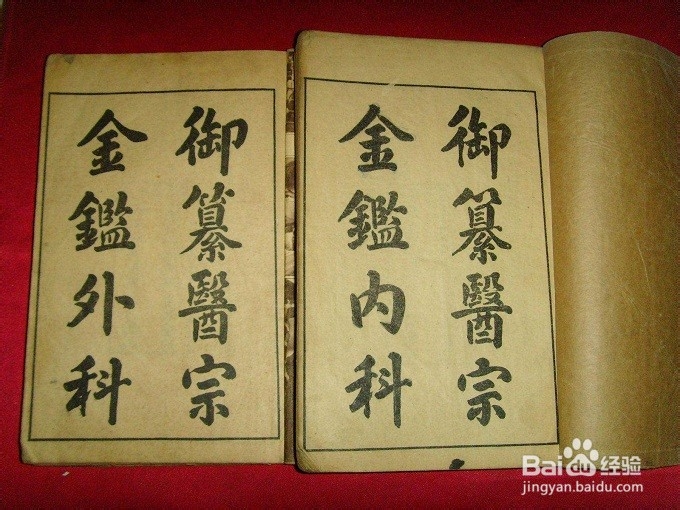 御纂醫宗
金鑑内科
御纂醫宗
金鑑外科
Baidu经验
jingyan.baidu.com